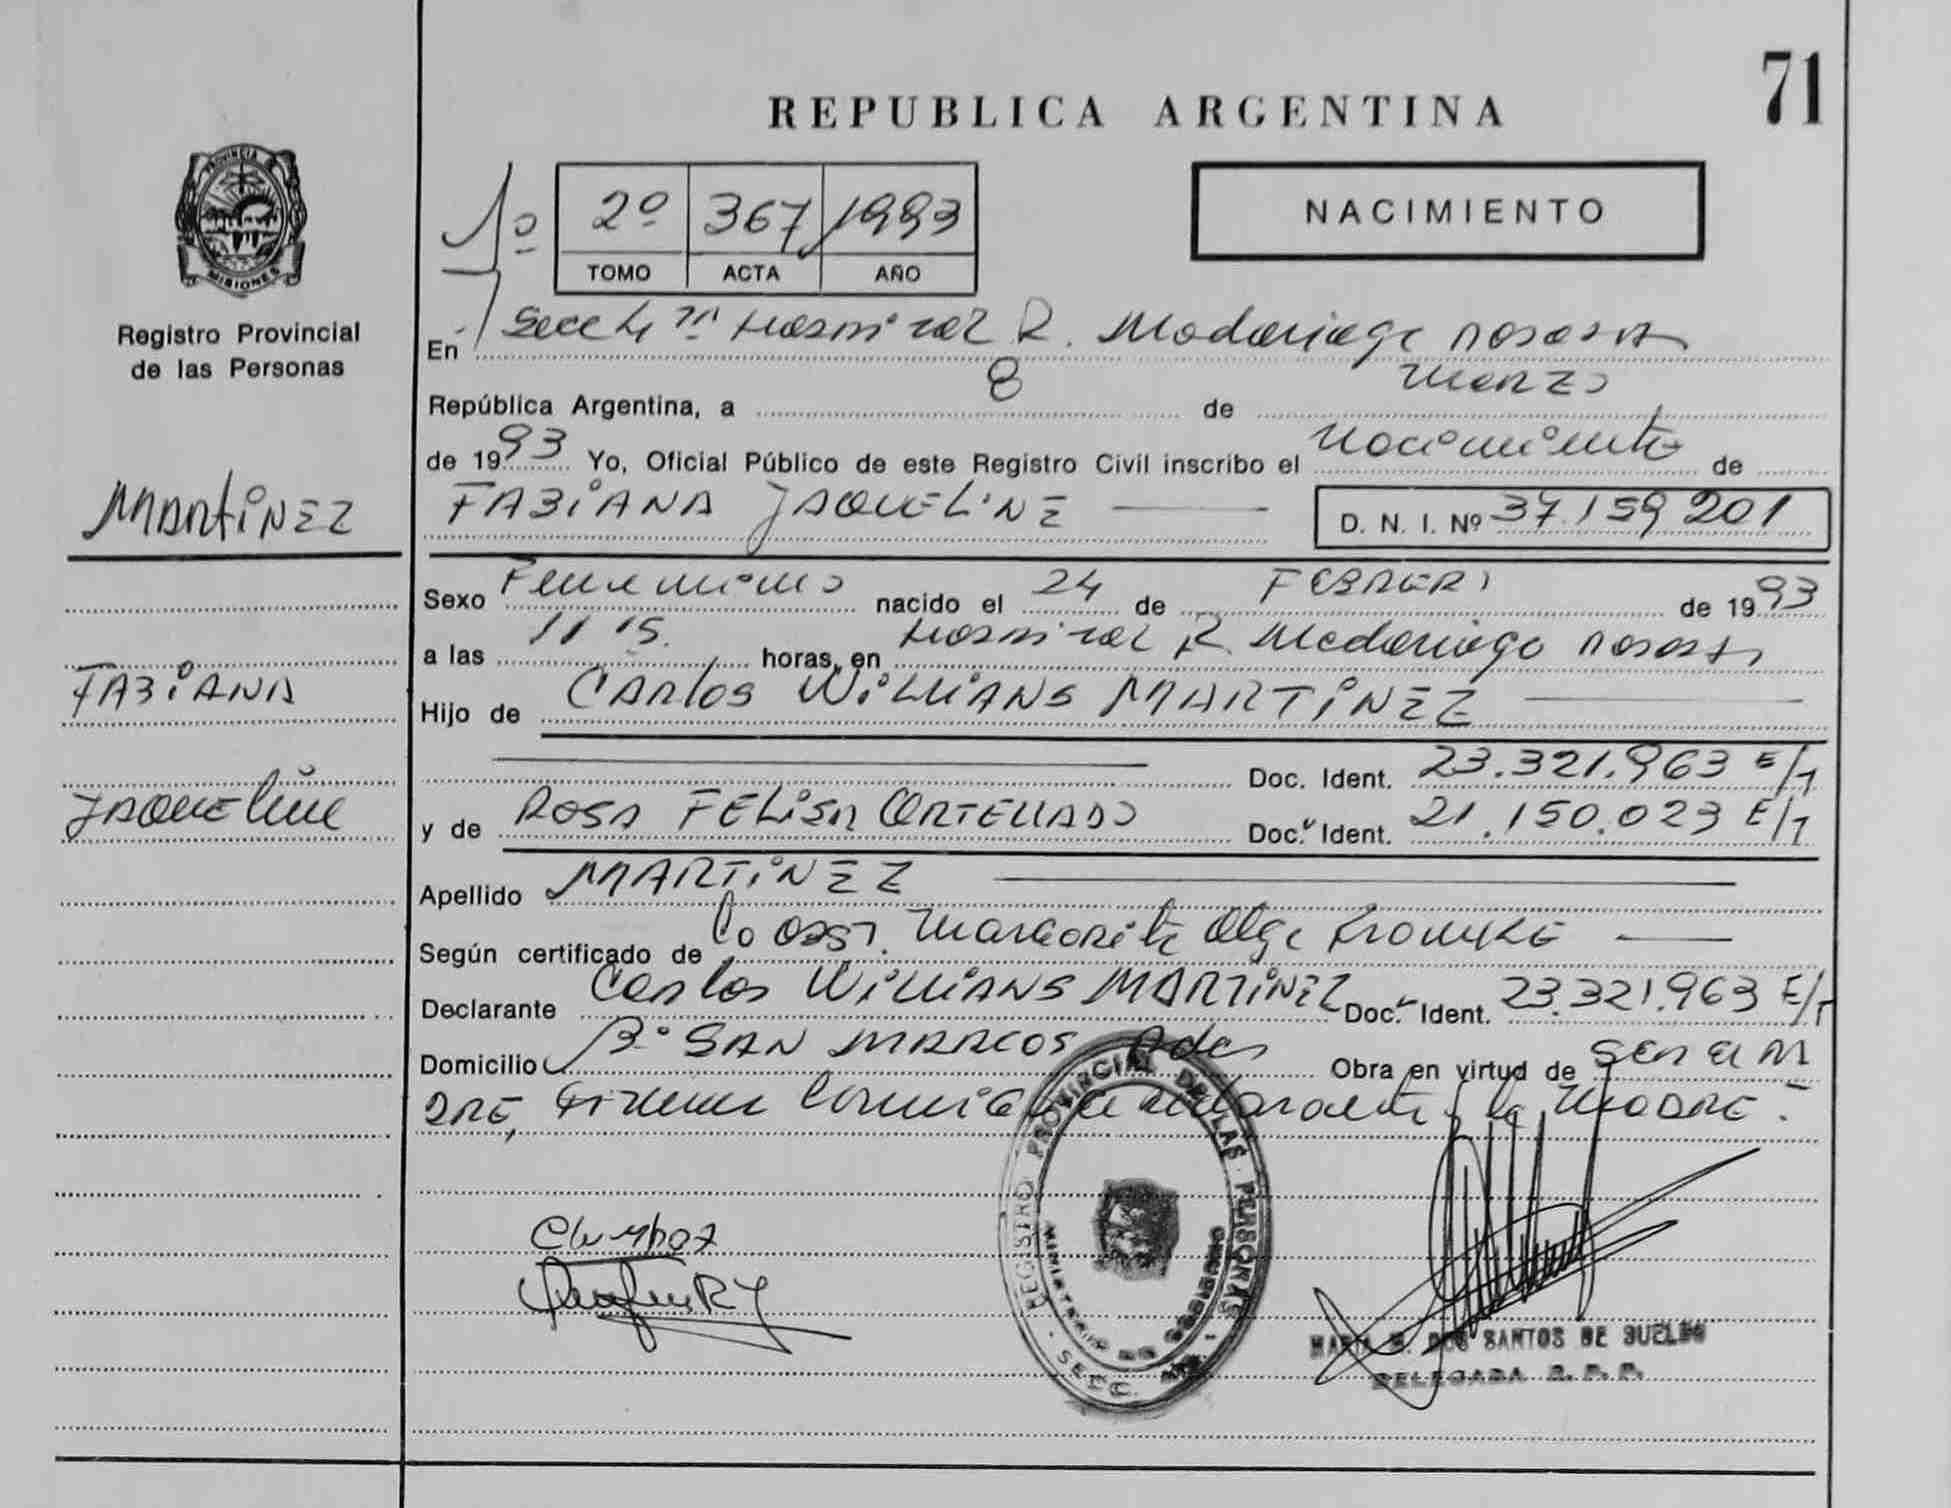 71
REPUBLICA ARGENTINA
PROVINCIA DE
MISIONES
Registro Provincial
de las Personas
1º
2º 367 1993
TOMO ACTA AÑO
NACIMIENTO
En Hospital R. Madariaga Posadas
República Argentina, a 8 de Marzo
de 1993 Yo, Oficial Público de este Registro Civil inscribo el Nacimiento de
FABIANA JAQUELINE D. N. I. Nº 37.159.201
MARTINEZ
FABIANA
JAQUELINE
Sexo Femenino nacido el 24 de FEBRERO de 1993
a las 11 15. horas, en Hospital R. Madariaga Posadas
Hijo de CARLOS WILLIANS MARTINEZ
Doc. Ident. 23.321.963 E/T
y de ROSA FELISA Doc. Ident. 21.150.023 E/T
Apellido MARTINEZ
Según certificado de la Obst. Margarita Olga
Declarante Carlos WILLIANS MARTINEZ Doc. Ident. 23.321.963 E/T
Domicilio Bº SAN MARCOS Pdas Obra en virtud de Ser el PA
DRE, Firman el declarante y la MADRE.-
REGISTRO PROVINCIAL DE LAS PERSONAS
SECC.
MARIA DOS SANTOS DE SUELDO
DELEGADA R. P. P.